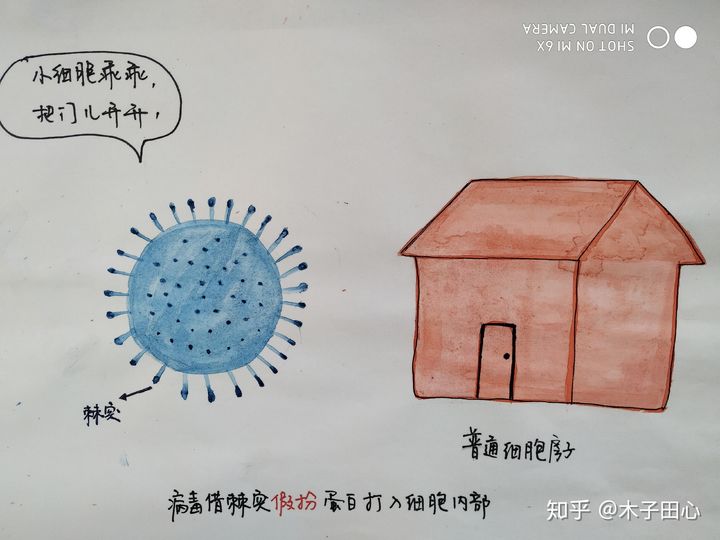 SHOT ON MI 6X
MI DUAL CAMERA
小细胞乖乖，
把门儿开开，
棘突
普通细胞房子
病毒借棘突假扮蛋白打入细胞内部
知乎 @木子田心